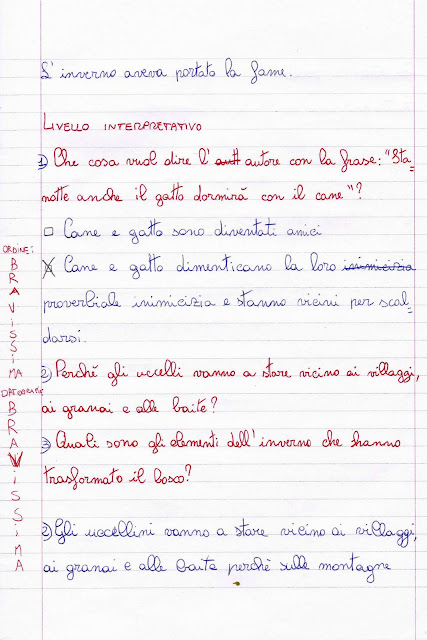 L'inverno aveva portato la fame.
LIVELLO INTERPRETATIVO
1) Che cosa vuol dire l' autore con la frase: "Sta=
notte anche il gatto dormirà con il cane"?
□ Cane e gatto sono diventati amici
☒ Cane e gatto dimenticano la loro inimicizia
proverbiale inimicizia e stanno vicini per scal=
darsi.
2) Perché gli uccelli vanno a stare vicino ai villaggi,
ai granai e alle baite?
3) Quali sono gli elementi dell'inverno che hanno
trasformato il bosco?
2) Gli uccellini vanno a stare vicino ai villaggi,
ai granai e alle baite perchè sulle montagne
ORDINE:
BRAVISSIMA
ORTOGRAFIA
BRAVISSIMA